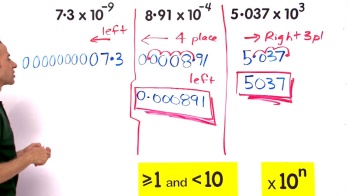 7·3 x 10⁻⁹
← left
0000000007·3
8·91 x 10⁻⁴
← 4 place
0·0008·91
left
0·000891
5·037 x 10³
→ Right 3pl
5·037
5037
⩾1 and <10
x 10ⁿ